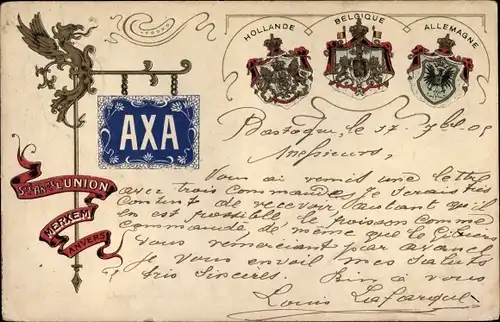 HOLLANDE
BELGIQUE
ALLEMAGNE
AXA
Sté An.me L'UNION
MERXEM
ANVERS
Bastogne, le 17 7bre 05
Messieurs,
Vous ai remit une lettre
avec trois commande. Je serais très
content de recevoir, autant qu'il
en est possible le poisson comme
commande de même que le
Vous remerciant par avance
Je vous envoil mes saluts
très sincères. Bien à vous
Louis Lafargue